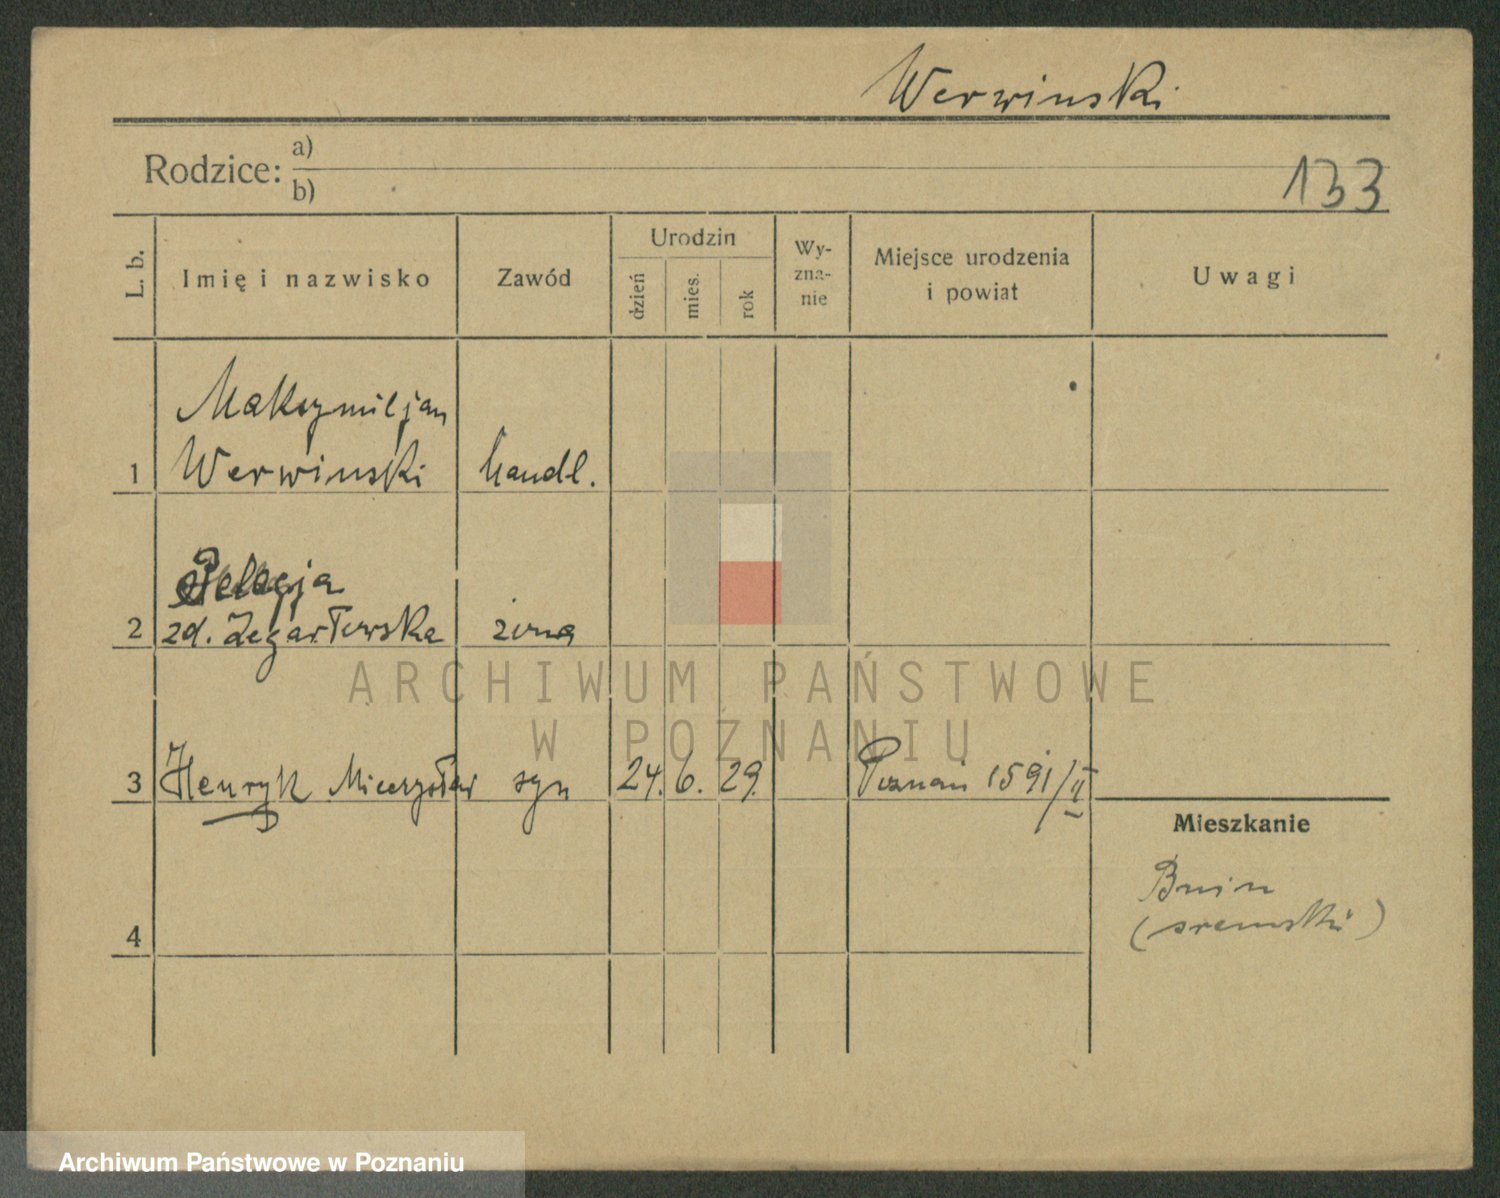 Werwinski
Rodzice: a)
b)
133
L. b.
Imię i nazwisko
Zawód
Urodzin
dzień
mies.
rok
Wy-
zna-
nie
Miejsce urodzenia
i powiat
Uwagi
Maksymiljan
1 Werwinski handl.
Pelagja
2 zd. Zegartowska żona
3 Henryk Mieczysław syn 24. 6. 29. Poznań 1591/II
Mieszkanie
4
Bnin
(śremski)
ARCHIWUM PAŃSTWOWE
W POZNANIU
Archiwum Państwowe w Poznaniu